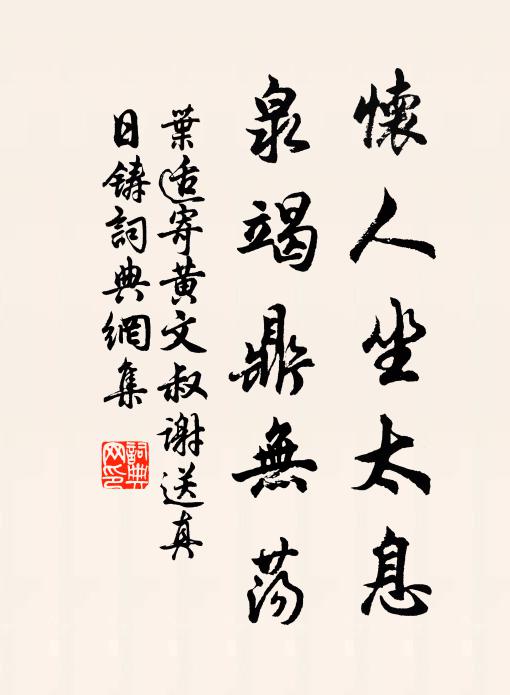 懷人坐太息
泉竭鼎無蕩
葉适寄黃文叔謝送真
日鑄詞典網集
詞典網印